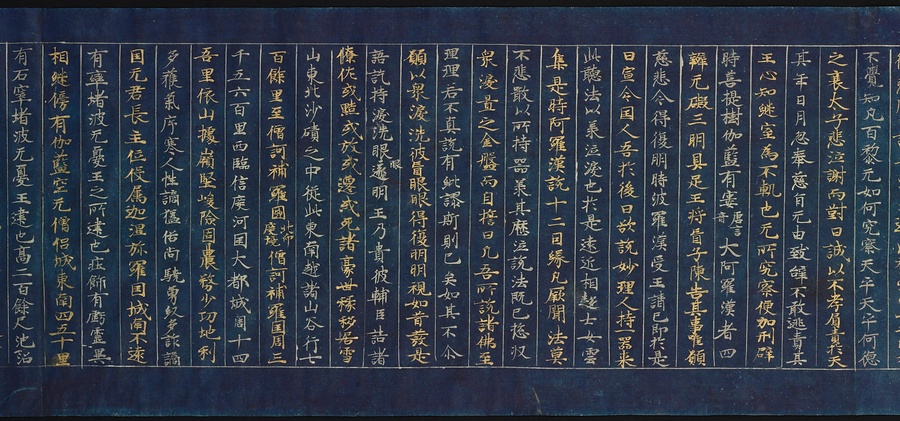 不覺知凡百黎元如何究察天乎天乎何德
之衰太子悲泣謝而對曰誠以不孝負責於天
某年日月忽奉慈旨元由致辭不敢逃責其
王心知継室為不軌也元所究察便加刑辟
時菩提樹伽藍有寠唐言大阿羅漢者四
辯元礙三明具足王將盲子陳告其事唯願
慈悲令得復明時彼羅漢受王請已即於是
日宣令国人吾於後日欲說妙理人持一器来
此聽法以承泣淚也於是遠近相趍士女雲
集是時阿羅漢說十二因緣凡厥聞法莫
不悲以所持器承其瀝泣說法既已惣収
衆淚置之金盤而自誓曰凡吾所說諸佛至
理理若不真說有紕謬斯則已矣如其不尒
願以衆淚洗彼盲眼眼得復明明視如昔發是
語訖持淚洗眼眼遂明王乃責彼輔臣詰諸
僚佐或黜或放或遷或死諸豪世祿移居雪
山東北沙磧之中從此東南越諸山谷行七
百餘里至僧訶補羅國北印度境僧訶補羅国周三
千五六百里西臨信度河国大都城周十四
五里依山據嶺堅峻險固農務少功地利
多穫氣序寒人性調猛俗尚驍勇又多詐譎
国元君長主位役属迦濕弥羅国城南不遠
有窣堵波元憂王之所建也莊飾有虧靈異
相継傍有伽藍空元僧侶城東南四五十里
有石窣堵波元憂王建也高二百餘尺池沼